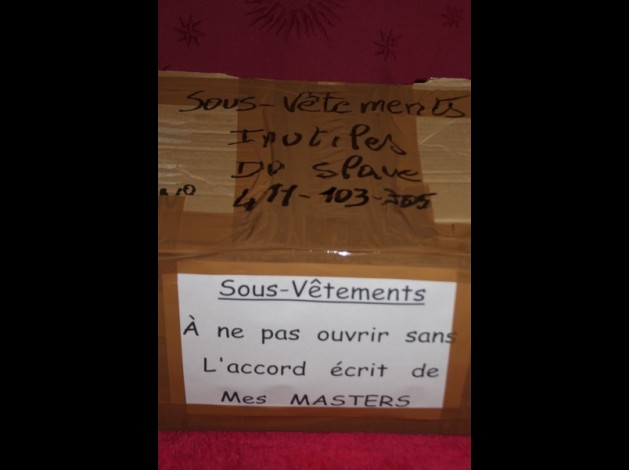 Sous-Vêtements
Inutiles
Du slave
411-103-705
Sous-Vêtements
À ne pas ouvrir sans
L'accord écrit de
Mes MASTERS